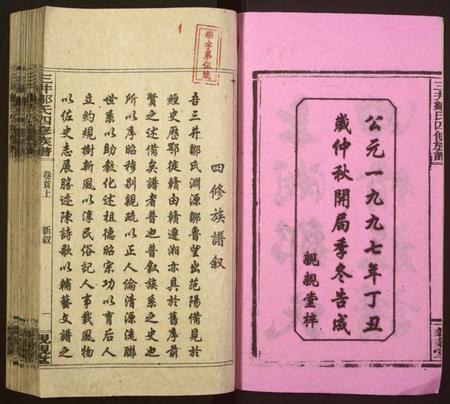 公元一九九七年丁丑
歲仲秋開局季冬告成
親親堂梓
四修族譜叙
吾三井鄒氏淵源鄒魯望出范陽備見於
經史歷鄂徙贛由贛遷湘亦具於舊序前
賢之述備矣譜者普也普叙族系之史也
所以序昭穆別親疏以正人倫清源流聯
世系以助教化述祖德昭宗功以育后人
立約規樹新風以淳民俗記人事載風物
以佐史志展勝迹陳詩歌以輔藝文譜之
三井鄒氏四修族譜
卷首上
新叙
親親堂